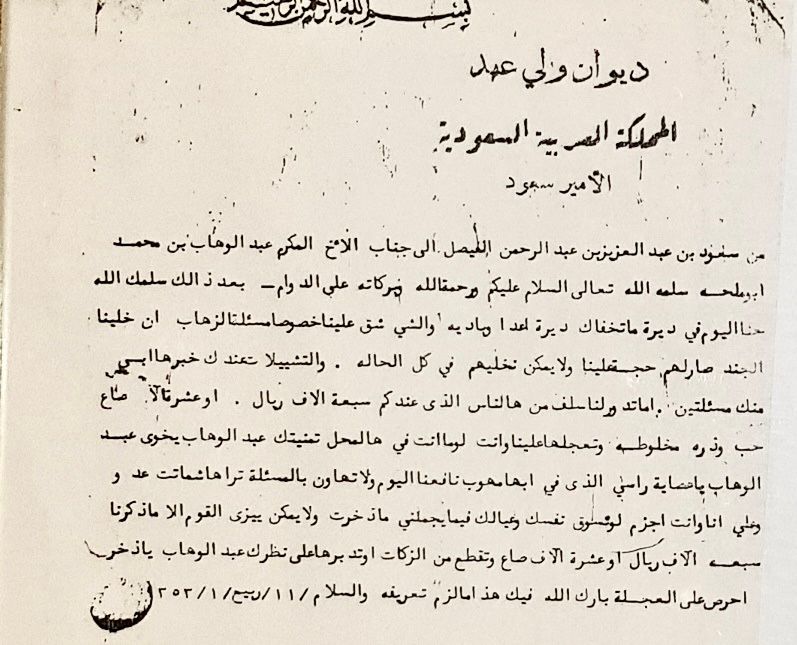 بسم الله الرحمن الرحيم
ديوان ولي عهد
المملكة العربية السعودية
الأمير سعود
من سعود بن عبد العزيز بن عبد الرحمن الفيصل الى جناب الاخ المكرم عبد الوهاب بن محمد
ابوملحه سلمه الله تعالى السلام عليكم ورحمة الله وبركاته على الدوام – بعد ذالك سلمك الله
حنا اليوم في ديرة ماتخفاك ديرة اعدا وباديه والشي شق علينا خصوصا مسئلتالزهاب ان خلينا
الجند صار لهم حجة علينا ولا يمكن نخليهم في كل الحاله . والتشييلا تعندك خبرها ابي
منك مسئلتين . اما تدورلنا سلف من هالناس الذى عندكم سبعة الاف ريال . او عشرةالاف صاع
حب وذره مخلوطه وتعجلها علينا وانت لوما انت في هالمحل تمنيتك عبد الوهاب يخوى عبد
الوهاب ياعصاية راسي الذى في ابها مهوب نافعنا اليوم ولا تهاون بالمسئلة تراها شماتت عد و
وعلي انا وانت اجزم لو تسوق نفسك وعيالك فيما يجملني ما ذخرت ولا يمكن ييزى القوم الا ما ذكرنا
سبعه الاف ريال او عشرة الاف صاع وتقطع من الزكات او تدبرها على نظرك عبد الوهاب ياذخرى
احرص على العجلة بارك الله فيك هذا مالزم تعريفه والسلام /١١/ربيع/١/٣٥٣